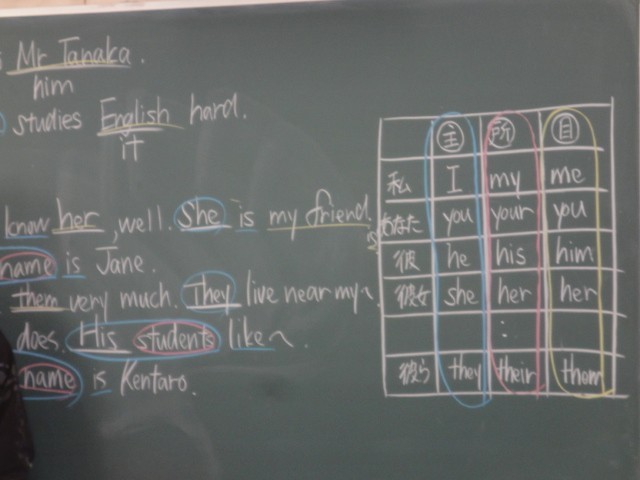 Mr Tanaka.
him
studies English hard.
it
know her, well. She is my friend
name is Jane.
them very much. They live near my~.
does. His students like~.
name is Kentaro.
主 所 目
私 I my me
あなた you your you
彼 he his him
彼女 she her her
:
彼ら they their them